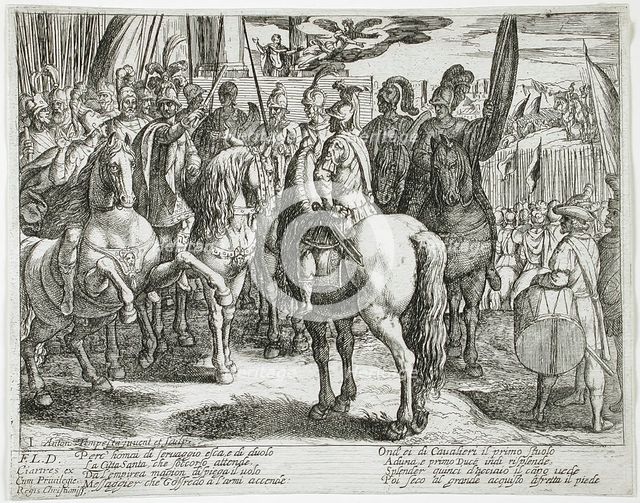 1 Anton. Tempesta inuent et sculpt.
F.L.D.
Ciartres ex.
Cum Privilegio
Regis Christianiss.
Perc' homai di seruaggio esca, e di duolo
La Citta Santa, che soccorso attende,
Da l'empirea magion, di piega il uolo
Messaggier che Gofredo a l'armi accende.
Ond' ei di Cavalieri il primo stuolo
Aduna, e primo Duce indi risplende.
Splender quinci d'acciaio il capo uede
Poi seco al grande acquisto afretta il piede
heritage